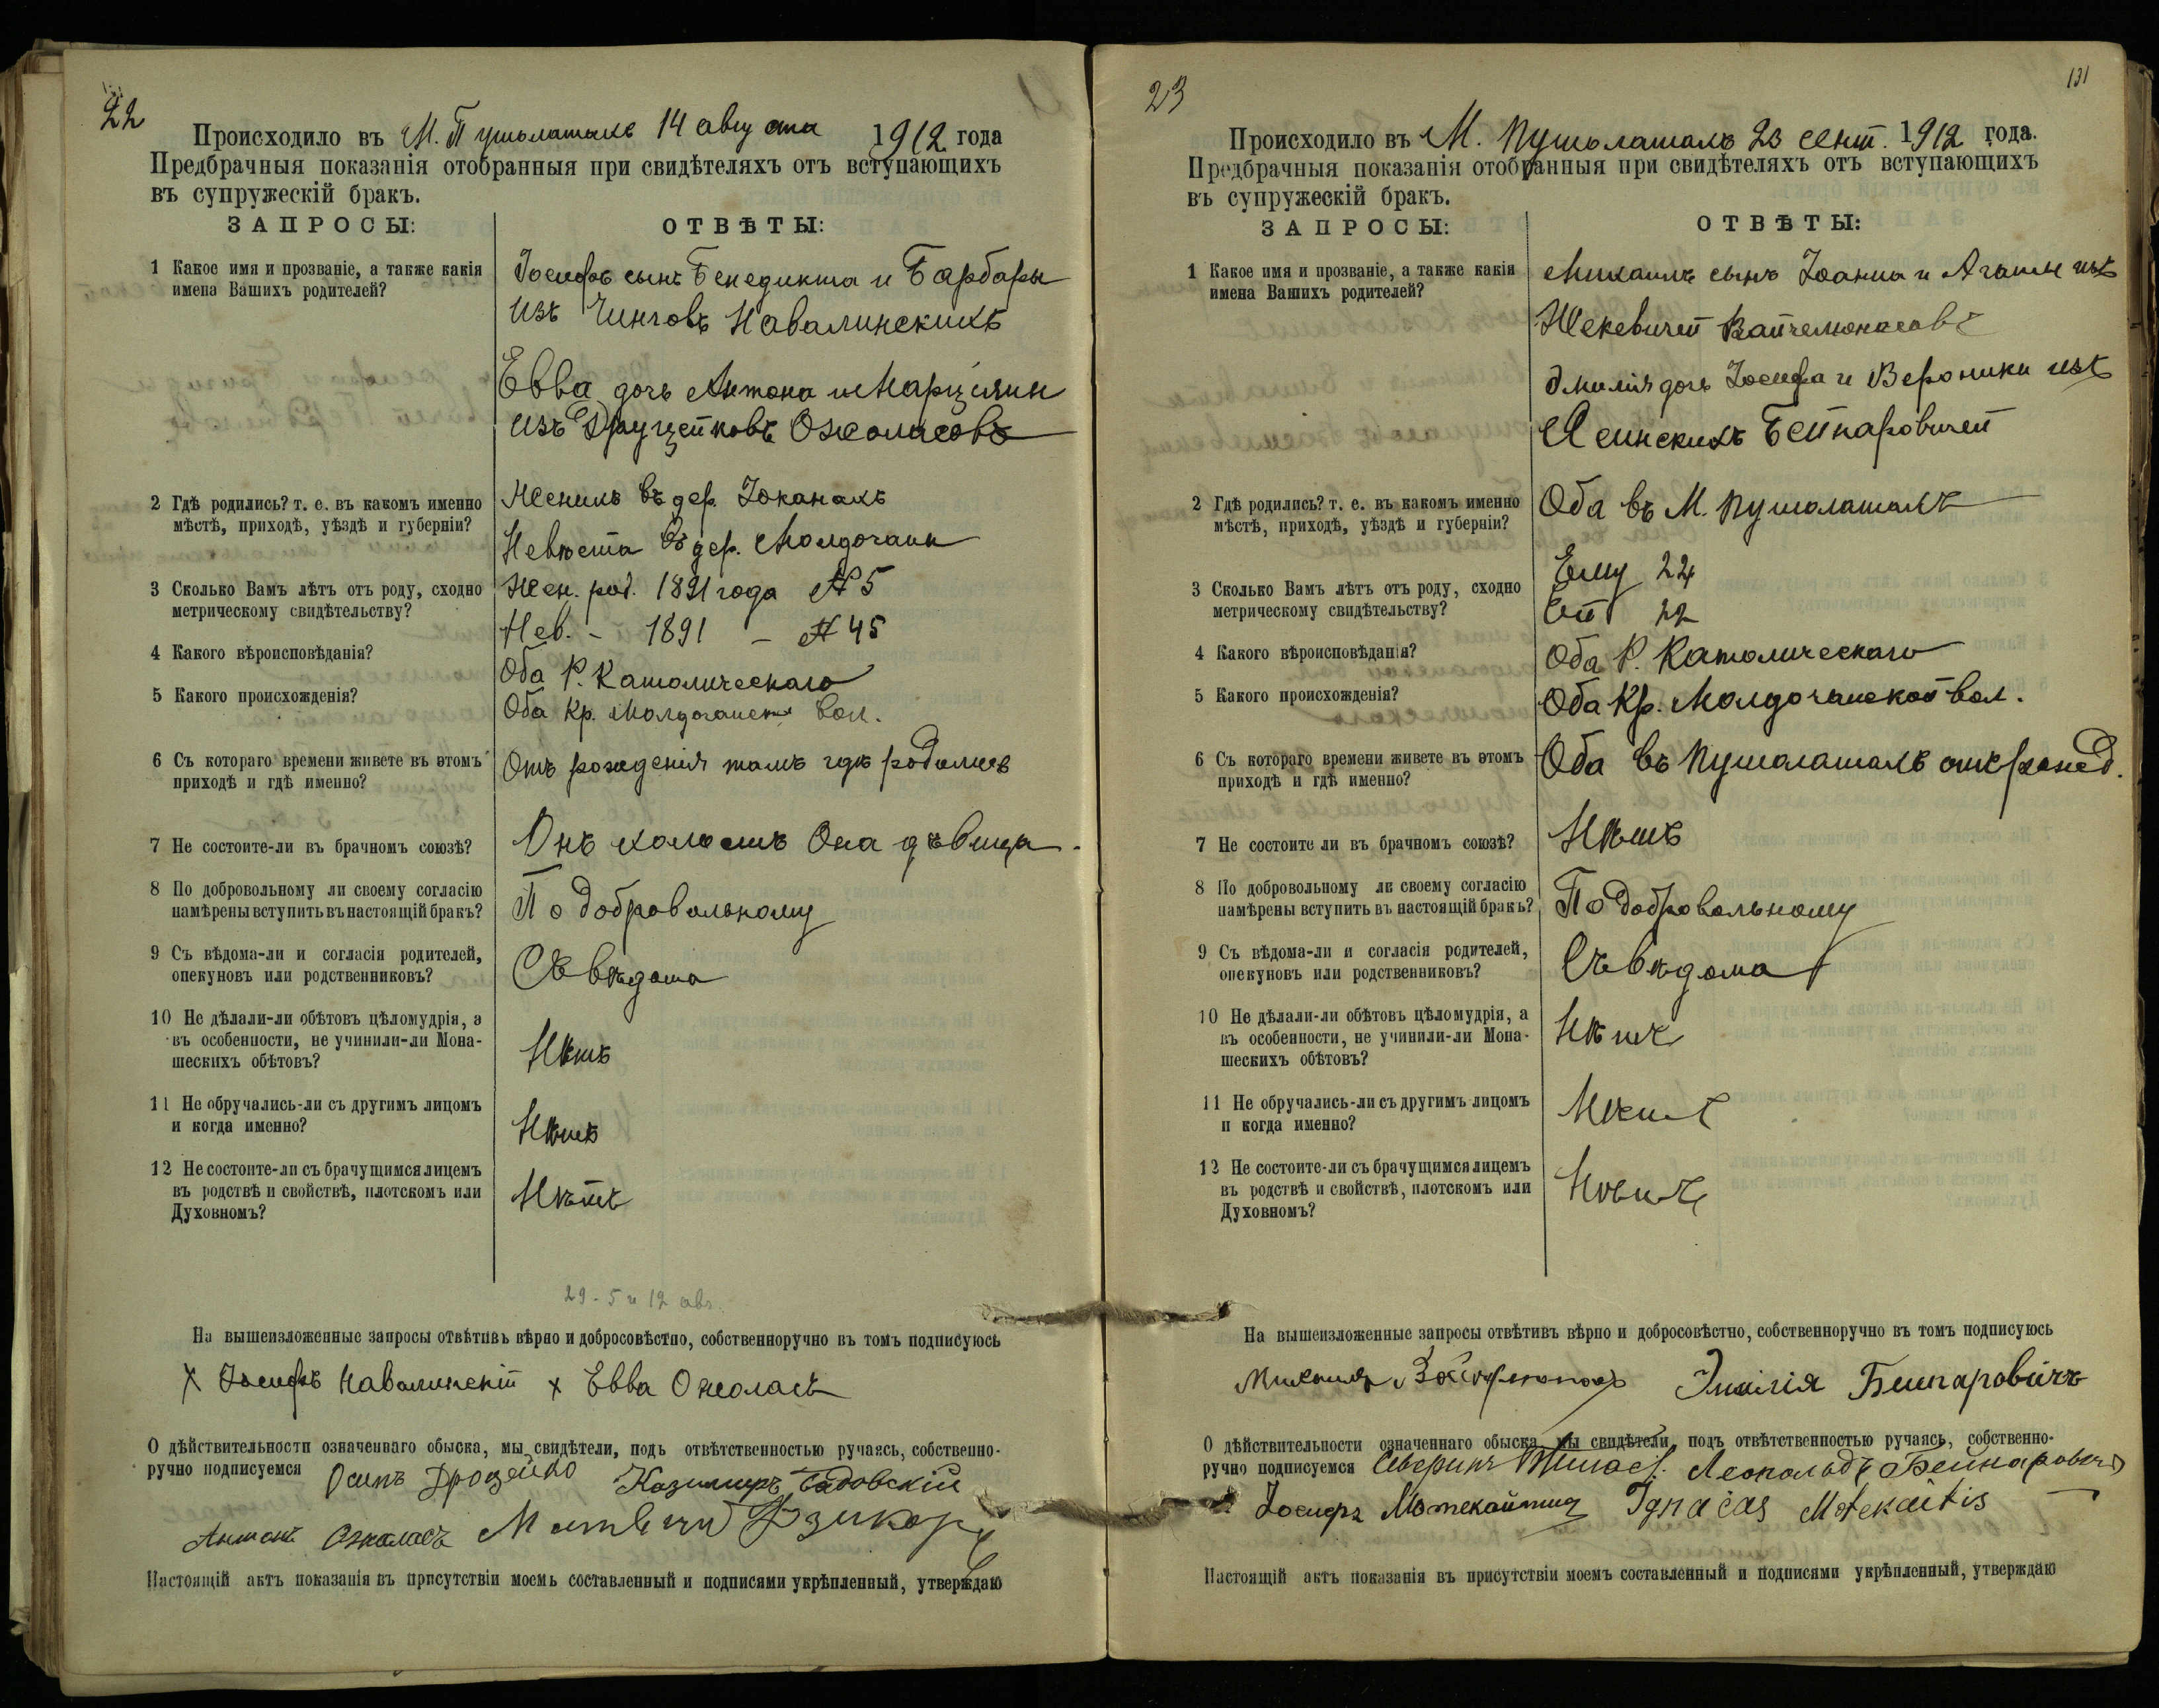 22
Происходило въ М. Пушолатахъ 14 августа 1912 года
Предбрачныя показанія отобранныя при свидѣтеляхъ отъ вступающихъ
въ супружескій бракъ.
ЗАПРОСЫ: ОТВѢТЫ:
1 Какое имя и прозваніе, а также какія
имена Вашихъ родителей?
Іосифъ сынъ Бенедикта и Барбары
изъ Чинговъ Навалинскихъ
Евва дочь Антона и Марціяны
изъ Друщейковъ Ожоласовъ
2 Гдѣ родились? т. е. въ какомъ именно
мѣстѣ, приходѣ, уѣздѣ и губерніи?
Женихъ въ дер. Юканахъ
Невѣста въ дер.
3 Сколько Вамъ лѣтъ отъ роду, сходно
метрическому свидѣтельству?
Жен. род. 1891 года № 5
Нев. – 1891 – № 45
4 Какого вѣроисповѣданія?
Оба Р. Католическаго
5 Какого происхожденія?
Оба Кр. вол.
6 Съ котораго времени живете въ этомъ
приходѣ и гдѣ именно?
Отъ рожденія тамъ гдѣ родились
7 Не состоите-ли въ брачномъ союзѣ?
Онъ холостъ Она дѣвица
8 По добровольному ли своему согласію
намѣрены вступить въ настоящій бракъ?
По добровольному
9 Съ вѣдома-ли и согласія родителей,
опекуновъ или родственниковъ?
Съ вѣдома
10 Не дѣлали-ли обѣтовъ цѣломудрія, а
въ особенности, не учинили-ли Мона-
шескихъ обѣтовъ?
Нѣтъ
11 Не обручались-ли съ другимъ лицомъ
и когда именно?
Нѣтъ
12 Не состоите-ли съ брачущимся лицемъ
въ родствѣ и свойствѣ, плотскомъ или
Духовномъ?
Нѣтъ
29 - 5 и 12 авг.
На вышеизложенные запросы отвѣтивъ вѣрно и добросовѣстно, собственноручно въ томъ подписуюсь
х Іосифъ Навалинскій х Евва Ожоласъ
О дѣйствительности означеннаго обыска, мы свидѣтели, подъ отвѣтственностью ручаясь, собственно-
ручно подписуемся Осипъ Дрощейко Казимиръ Садовскій
Антонъ Ожоласъ
Настоящій актъ показанія въ присутствіи моемъ составленный и подписями укрѣпленный, утверждаю
23
131
Происходило въ М. Пушолатахъ 23 сент. 1912 года.
Предбрачныя показанія отобранныя при свидѣтеляхъ отъ вступающихъ
въ супружескій бракъ.
ЗАПРОСЫ: ОТВѢТЫ:
1 Какое имя и прозваніе, а также какія
имена Вашихъ родителей?
Михаилъ сынъ Іоанна и Агаты изъ
Эмилія дочь Іосифа и Вероники изъ
Ясинскихъ Бейнаровичей
2 Гдѣ родились? т. е. въ какомъ именно
мѣстѣ, приходѣ, уѣздѣ и губерніи?
Оба въ М. Пушолатахъ
3 Сколько Вамъ лѣтъ отъ роду, сходно
метрическому свидѣтельству?
Ему 24
Ей 22
4 Какого вѣроисповѣданія?
Оба Р. Католическаго
5 Какого происхожденія?
Оба Кр. вол.
6 Съ котораго времени живете въ этомъ
приходѣ и гдѣ именно?
Оба въ Пушолатахъ отъ рожед.
7 Не состоите ли въ брачномъ союзѣ?
Нѣтъ
8 По добровольному ли своему согласію
намѣрены вступить въ настоящій бракъ?
По добровольному
9 Съ вѣдома-ли и согласія родителей,
опекуновъ или родственниковъ?
Съ вѣдома
10 Не дѣлали-ли обѣтовъ цѣломудрія, а
въ особенности, не учинили-ли Мона-
шескихъ обѣтовъ?
Нѣтъ
11 Не обручались-ли съ другимъ лицомъ
и когда именно?
Нѣтъ
12 Не состоите-ли съ брачущимся лицемъ
въ родствѣ и свойствѣ, плотскомъ или
Духовномъ?
Нѣтъ
На вышеизложенные запросы отвѣтивъ вѣрно и добросовѣстно, собственноручно въ томъ подписуюсь
Михаилъ Эмилія
О дѣйствительности означеннаго обыска, мы свидѣтели, подъ отвѣтственностью ручаясь, собственно-
ручно подписуемся Северинъ Леопольдъ Бейнаровичъ
Іосифъ Мотекайтис Ignacas Motekaitis
Настоящій актъ показанія въ присутствіи моемъ составленный и подписями укрѣпленный, утверждаю